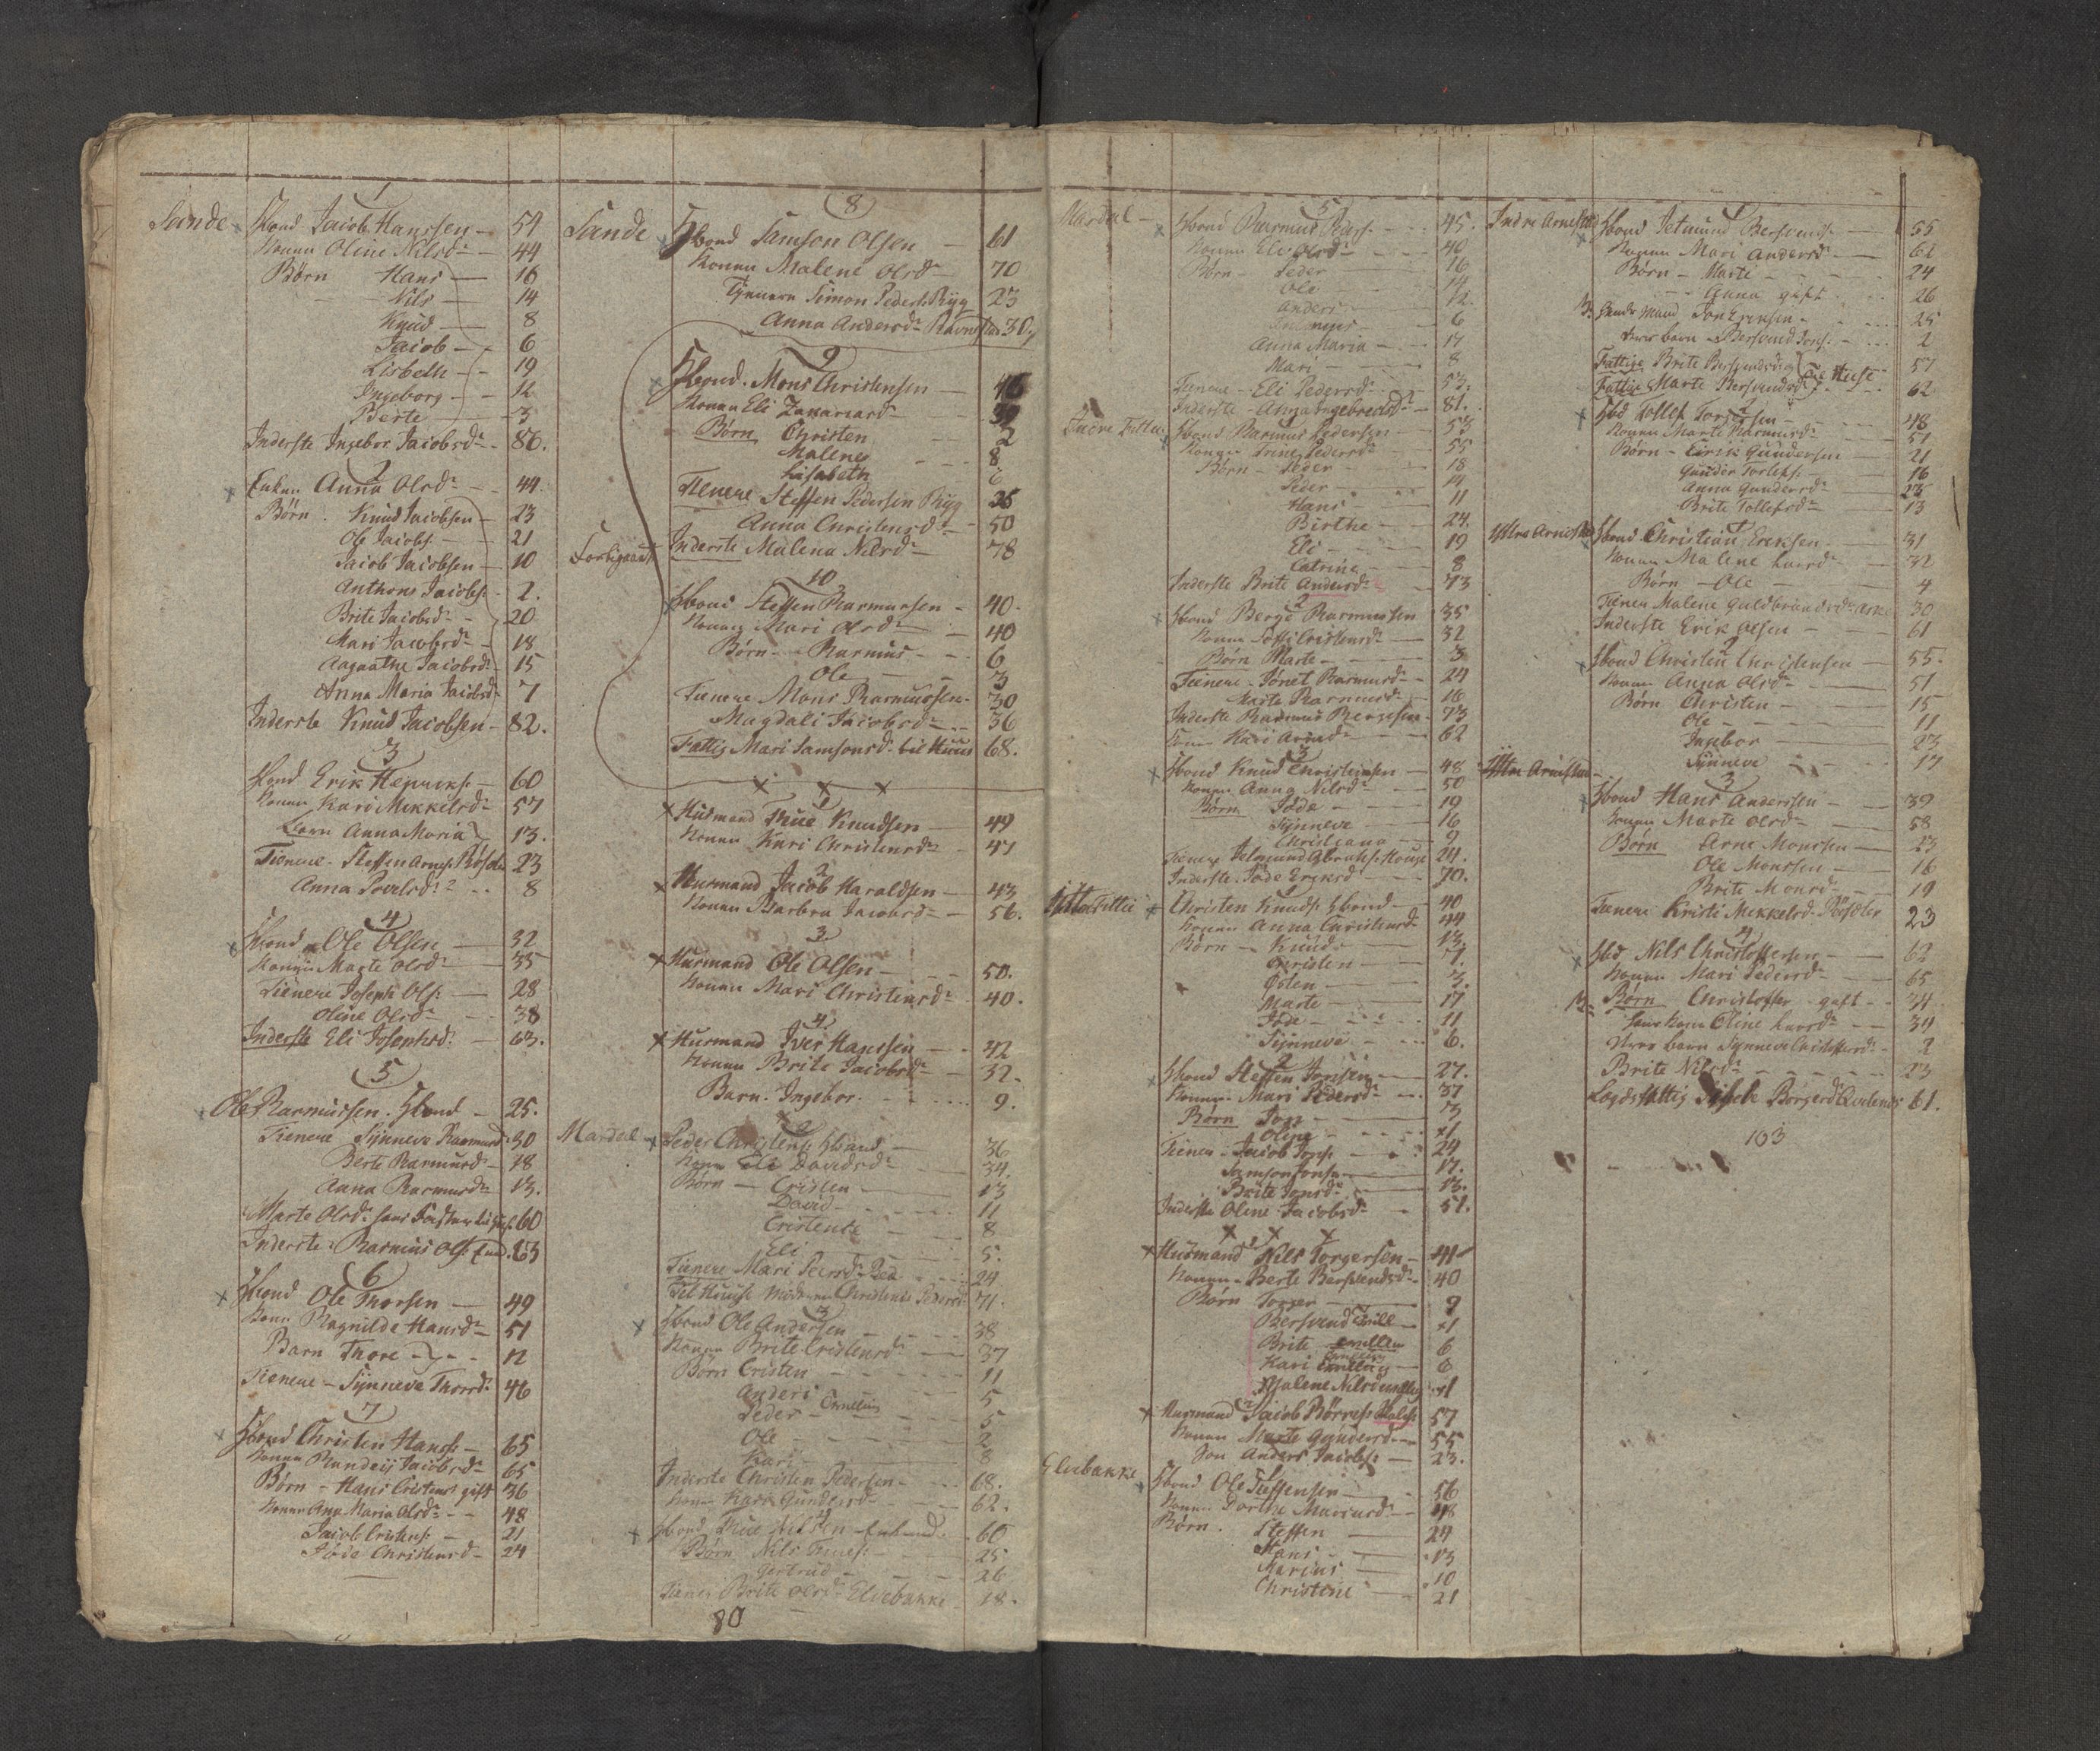 1
Sande Hbond Jacob Hanssen - 54
Konen Oline Nilsd: - 44
Børn Hans - 16
Nils - 14
Knud - 8
Jacob - 6
Lisbeth - 19
Ingeborg - 12
Berte - 3
Inderste Ingebor Jacobsd: - 86.
2
Enken Anna Olsd: - 44.
Børn. Knud Jacobsen - 23
Ole Jacobs: - 21
Jacob Jacobsen - 10
Anthons Jacobs: - 2.
Brite Jacobsd: - 20
Mari Jacobsd: - 18
Aagaathe Jacobsd: - 15
Anna Maria Jacobsd: 7
Inderste Knud Jacobsen - 82.
3
Hbond Erik Henriks: - 60
Konen Kari Mikkelsd: 57
Barn Anna Maria 13.
Tienere - Steffen Arnes: 23
Anna Povelsd: 8
4
Hbond Ole Olsen - 32
Konen Marte Olsd: 35
Tienere Joseph Ols: - 28
Oline Olsd: 38
Inderste Eli Josephsd: - 63.
5
Ole Rasmussen. Hbond - 25.
Tienere Synneve Rasmusd: 30
Berte Rasmusd: - 18
Anna Rasmusd: 13.
Marte Olsd: hans 60
Inderste Rasmus Ols: 63
6
Hbond Ole Thorsen - 49
Kone Ragnilde Hansd: 51
Barn Thore - 12
Tienere - Synneve Thorsd: 46
7
Hbond Christen Hanss: - 65
Konen Randeij Jacobsd: 65
Børn - Hans Cristens: gift 36
Konen Ana Maria Olsd: - 48
Jacob Cristens: - 21
Jøde Christensd - 24
8
Sande Hbond Samson Olsen - 61
Konen Malene Olsd: - 70
Tynere Simon Peders: Ryg 23
Anna Andersd: 30,
9
Hbond. Mons Christensen - 46
Konen Eli Zakariasd: 39
Børn Christen 2
Malene 8
Lisabeth 6
Tienere Steffen Pedersen Ryg 26
Anna Christensd: 50
Inderste Malena Nilsd: - 78
10
Hbond Steffen Rasmussen - 40.
Konen Mari Olsd: - 40
Børn - Rasmus - 6
Ole - 3
Tienere Mons Rasmussen - 30
Magdali Jacobsd: 36
Fattig Mari Samsonsd: til Huus 68.
x x x
1
Husmand True Knudsen - 49
Konen Kari Christensd: - 47
2
Husmand Jacob Haraldsen - 43
Konen Barbra Jacobsd: - 56.
3
Husmand Ole Olsen - 50.
Konen Mari Christensd: 40.
4
Husmand Iver Hanssen - 42
Konen Brite Jacobsd: 32.
Barn. Ingebor. - 9.
Mardal Peder Christens: Hbond - 36
Kone Eli Davidsd: 34.
Børn - Cristen - 13
David - 11
Cristense 8
Eli 5.
Tienere Mari Peersd: 24
Til Huuse Moderen Christense Pedersd: 71.
3
Hbond Ole Andersen - 38
Konen Brite Cristensd: 37
Børn Cristen - 11
Anders 5
Peder - 5
Ole - 2
Kari - 8
Inderste Christen Pedersen - 68.
Kone Kari Gundersd: 62.
4
Hbond True Nilsen - Enkemd. 60
Børn Nils Trues: 25
Gertrud - 26
Tiener Brite Olsd: Elvebakke 18.
80
5
Mardal - Hbond Rasmus Rass: - 45.
Konen Eli Olsd: - 40
Børn - Peder - 16
Ole - 14
Anders 12.
6
Anna Maria - 17
Mari - 8
Tienere - Eli Pedersd: 53.
Inderste - Anna Ingebretsd: - 81.
Hbond Rasmus Pedersen - 53
Konen Trine Pedersd: 55
Børn - Peder - 18
Peder - 14
Hans - 11
Birthe - 24.
Eli - 19
Catrine - 8
Inderste Brite Andersd: 73
2
Hbond Berge Rasmussen 35
Konen Cristensd: - 32
Børn Marte - 3
Tienere - Jønet Rasmusd: - 24
Marte Rasmusd: 16
Inderste Rasmus Bergesen - 73
Kari 62
3
Hbond Knud Christensen - 48
Konen Anna Nilsd: - 50
Børn Jøde - 19
Synneve - 16
Christiana - 9
Tienere Jetmund 24.
Inderste. Jøde Eriksd: 70.
Christen Knuds: Hbond - 40
Konen Anna Christensd: 44
Børn - Knud - 13.
Christen - 7.
Østen - 3.
Marte - 17
Jøde - 11
Synneve - 6.
2
Hbond Steffen Jonsen - 27.
Konen - Mari Pedersd: 37
Børn Jon - 3
Oline -
Tienere - Jacob Jons: - 24
Samson Jonsen 17.
Brite Jonsd: 13.
Inderste Oline Jacobsd: 51.
x x x
Husmand Nils Torgersen - 41
Konen - Berte Bersvendsd: 40
Børn Torger - 9
Bersvend
Brite 6
Kari 6
Malene Nilsd:
2
Husmand Jacob Børres: 57
Konen Marte Gundersd: 55
Søn Anders Jacobs: - 23.
Elvebakke Hbond Ole Steffensen - 56
Konen Dorthe Mariusd: - 48
Børn. Steffen - 24
Hans - 13
Marius - 10
Christine 21
1
Indre Arnestad Hbond Jetmund Bersvends: - 55
Konen Mari Andersd: - 62
Børn - Marte - 24
Anna gift 26
hendes Mand Jon Eriksen - 25
deres barn - Bersvend Jons: - 2
Fattige Brite Bersvendsd: til Huse 57
Fattig Marte Bersvendsd: 62
2
Hbd Tollef Torjussen - 48
Konen Marte Rasmusd: 51
Børn - Eirik Gundersen 21
Gunder Torlefs: - 16
Anna Gundersd: 23
Brite Tollefsd: 13
1
Ytre Arnestad Hbond Christian Eriksen - 31
Konen Malene Larsd: 32
Børn - Ole - 4
Tiener Malene Guldbrandsd: 30
Inderste Erik Olsen - 61
2
Hbond Christen Christensen - 55.
Konen Anna Olsd: - 51
Børn Christen - 15
Ole - 11
Ingebor 23
Synneve - 17
Ytre Arnestad
3
Hbond Hans Anderssen - 39
Konen Marte Olsd: 58
Børn Arne Monssen - 23
Ole Monssen - 16
Brite Monsd: - 19
Tienere Kristi Mikkelsd: 23
4
Hbd Nils Christoffersen - 62
Konen Mari Pedersd: 65
Børn Christoffer gift - 34
hans Kone Oline Larsd: - 34
deres barn Synneve Christoffersd: 2
Brite Nilsd: - 23
Lægdsfattig Børgesd: 61.
103